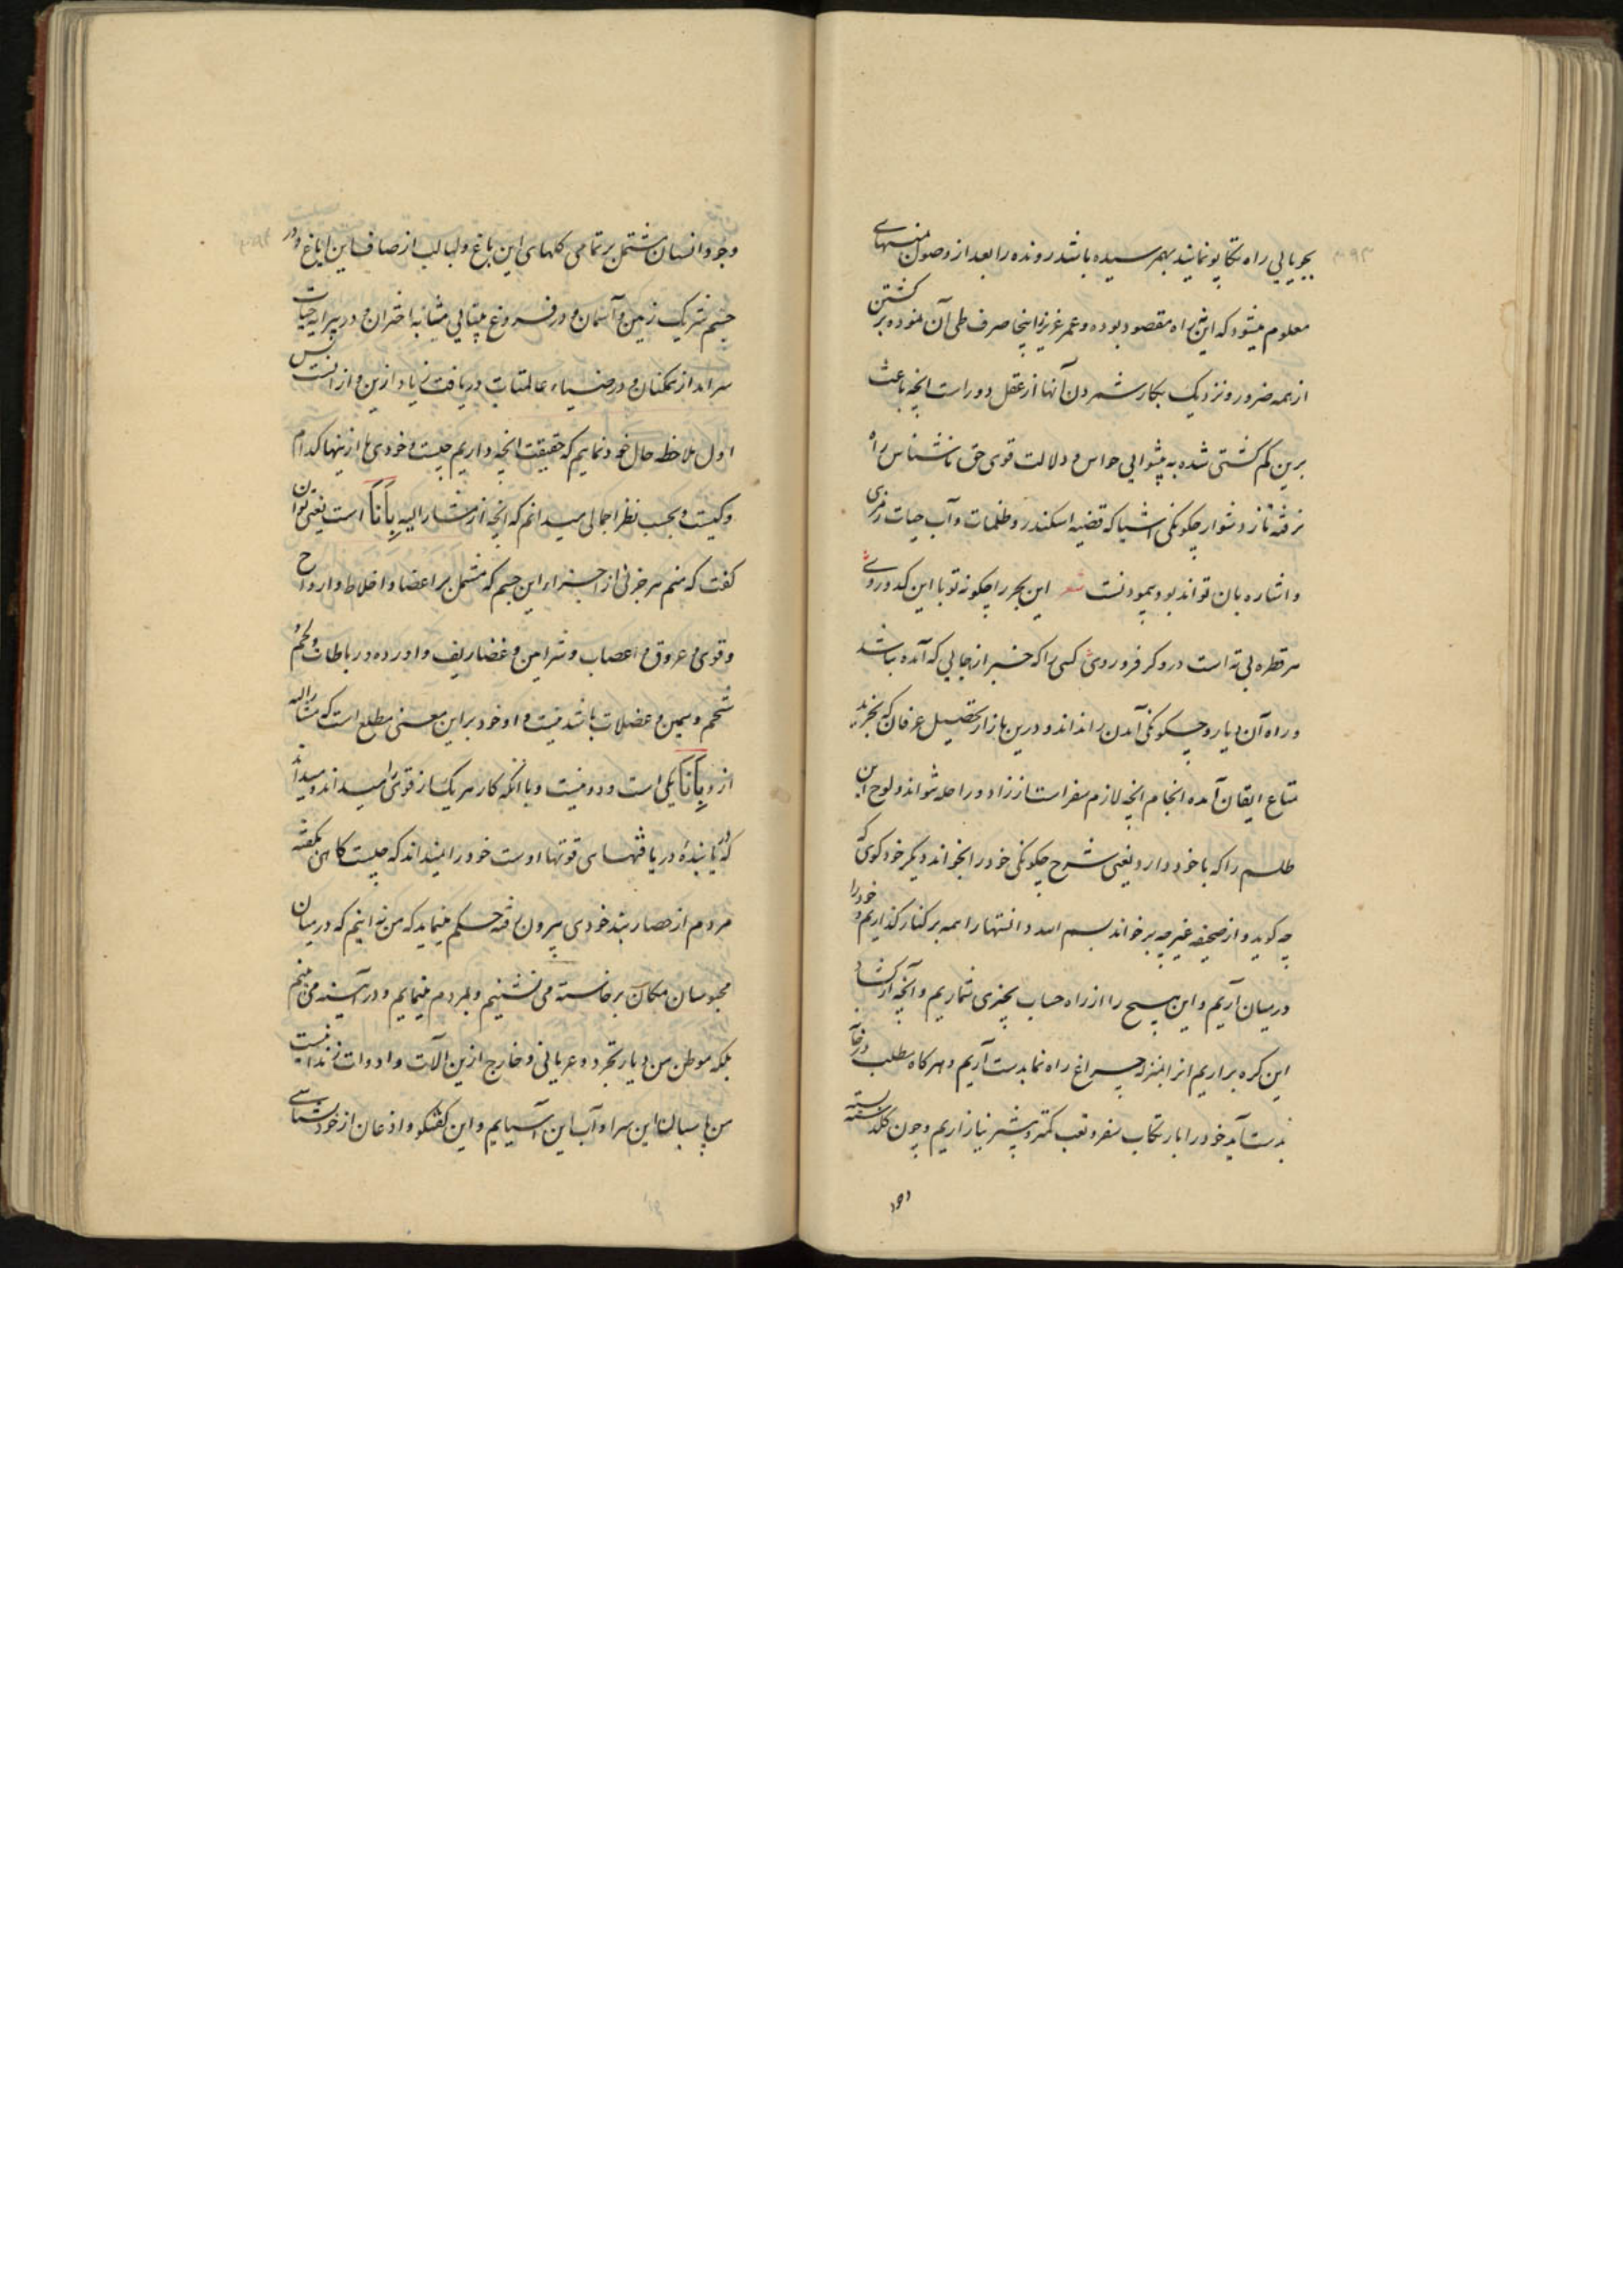 بجویایی راه تکاپو نمایند بهم رسیده باشد رونده را بعد از وصول منتهای
معلوم میشود که این راه مقصود بوده و عمر عزیز اینجا صرف طی آن نموده برگشتن
از همه ضرور و نزدیک بکار شمردن آنها از عقل دور است انچه باعث
برین کم گشتی شده به پیشوایی حواس و دلالت قوی حق ناشناس راه
نرفته از دشوار چگونگی اشیا که قضیه اسکندر و ظلمات و آب حیات رمزی
و اشاره بان تواند بود پیمودنست شعر این بحر را چگونه تو با این کدو روی
هر قطره بی ته است درو گر فرو روی کسی را که خبر از جایی که آمده باشد
و راه آن دیار و چگونگی آمدن را نداند و درین بازار تحصیل عرفان که بخرید
متاع ایقان آمده انجام انچه لازم سفر است از زاد و راحله نتواند و لوح این
طلسم را که با خود دارد یعنی شرح چگونگی خود را نخواند دیگر خود گوی که
چه گوید و از صحیفه غیر چه برخواند بسم الله دانستنها را همه بر کنار گذاریم و خود را
در میان آریم و این هیچ را از راه حساب بچیزی شماریم و آنچه از گشاد
این گره براریم انرا بمنزله چراغ راه نما بدست آریم و هر گاه مطلب در خانه
بدست آید خود را بارتکاب سفر و تعب کمتر و بیشتر نیازاریم و چون گلدسته بسته
۱۹۱
وجود انسان مشتمل بر تمامی گلهای این باغ و لبالب از صاف این ایاغ و در
جسم شریک زمین و آسمان و در فروغ بینایی مشابه اختران و در پیرایه حیات
سرامد از ممکنان و در ضیاء عالمتاب دریافت زیاد ازین و از انست پس
اول ملاحظه حال خود نمایم که حقیقت انچه داریم چیست و خودی ما ازینها کدام
و کیست و بحسب نظر اجمالی میدانم که انچه از مشار الیه بِاَنَا است یعنی توان
گفت که منم هر جزئی از اجزاء این جسم که مشتمل بر اعضا و اخلاط و ارواح
و قوی و عروق و اعصاب و شرایین و غضاریف و اورده و رباطات و لحم و
شحم و سمین و عضلات باشد نیست و او خود براین معنی مطلع است که مشار الیه
ازو بِاَنَا یکی است و دو نیست و با انکه کار هر یک از قوی را میداند و میداند
که یابنده دریافتهای قوتها اوست خود را نمیداند که چیست گاهی بگفته
مردم از حصار بند خودی بیرون رفته حکم مینماید که من نه اینم که در میان
محبوسان مکان برخاسته می نشینم و بمردم مینمایم و در آینه می بینم
بلکه موطن من دیار تجرد و عریانی و خارج ازین آلات و ادوات زندانیست
من پاسبان این سرا و آب این آسیایم و این گفتگو و اذعان از خودشناسی